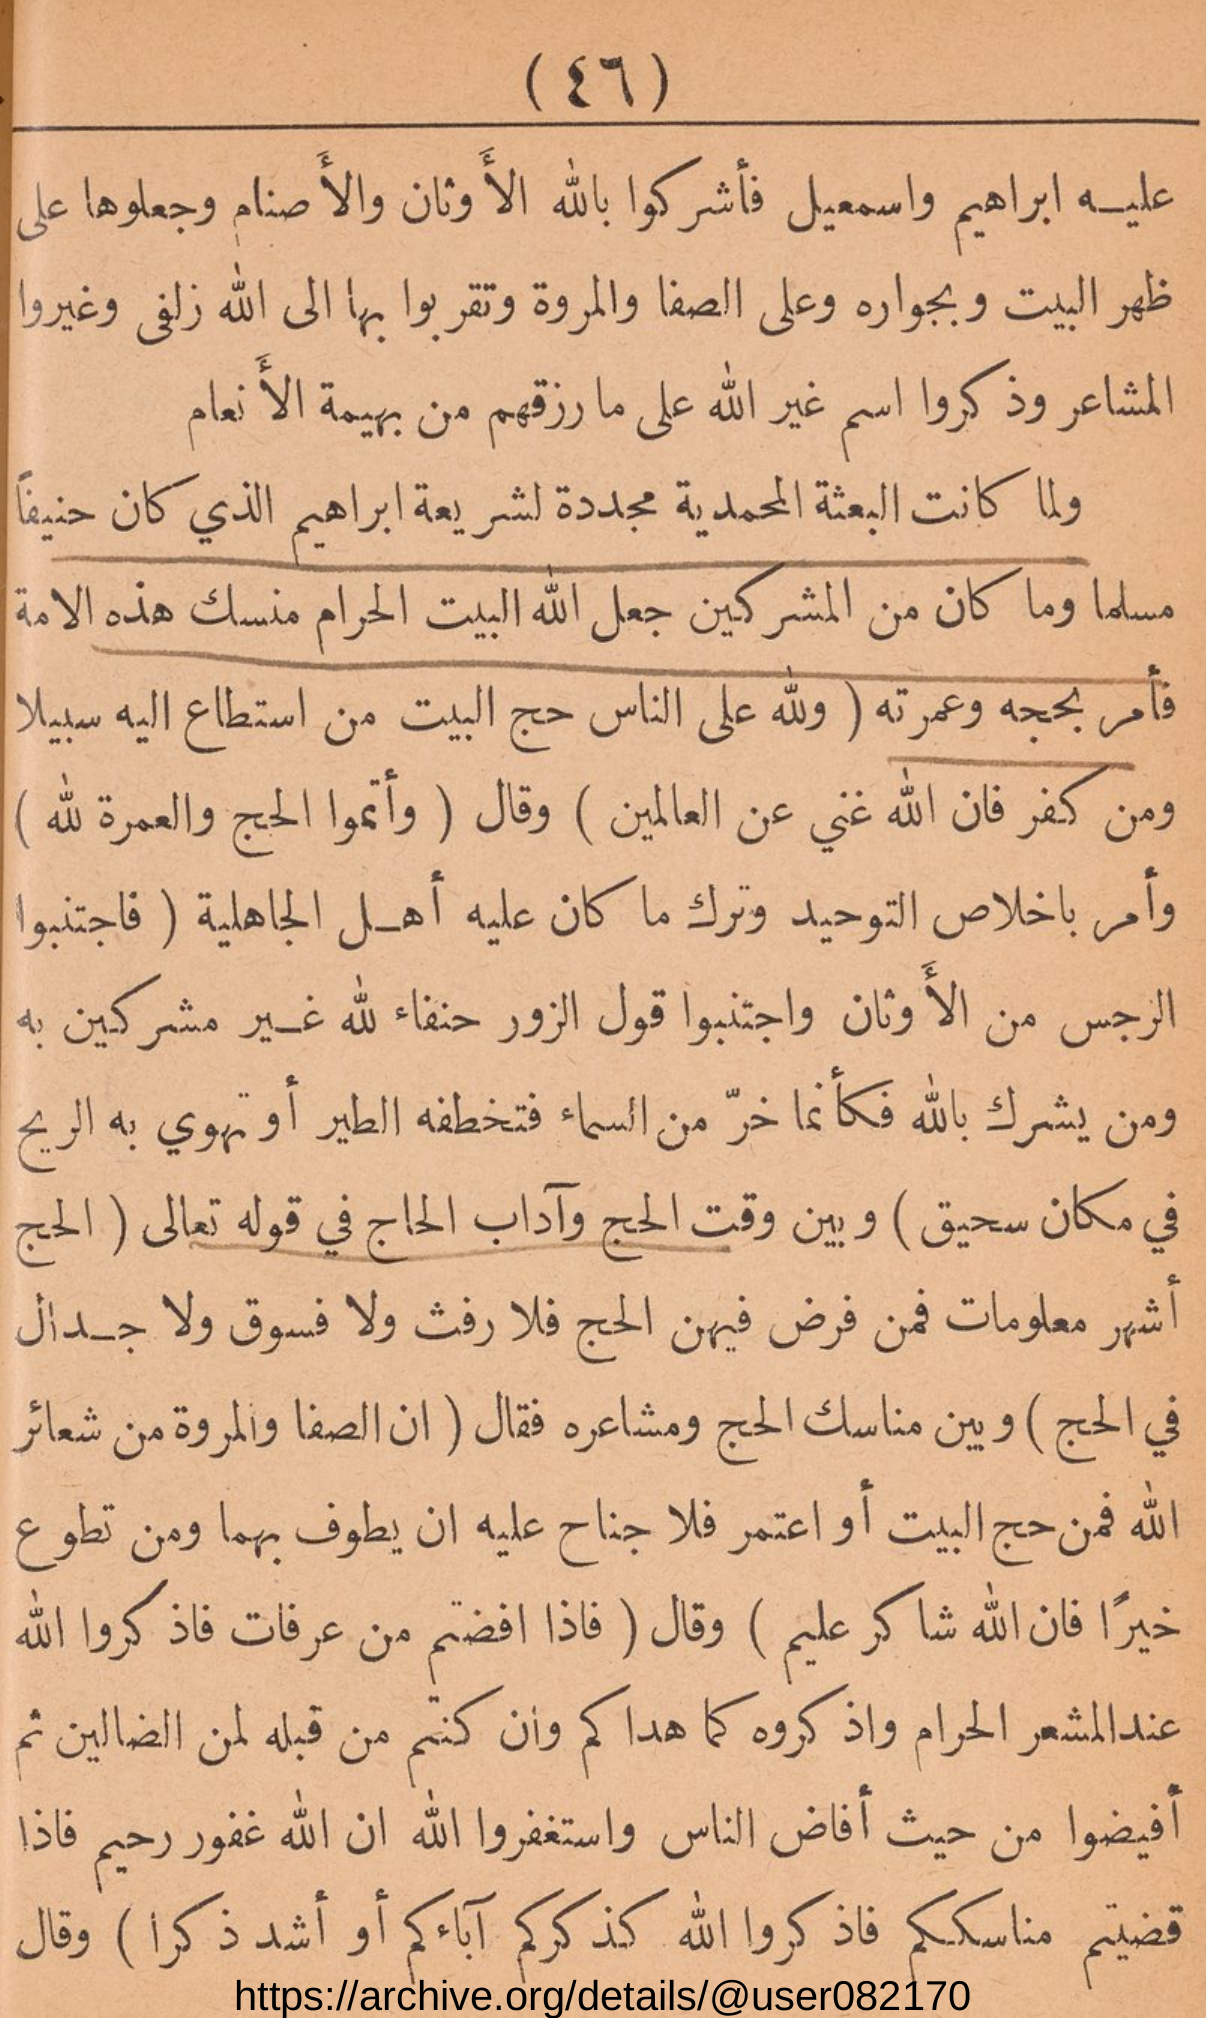 (٤٦)
عليـه ابراهيم واسمعيل فأشركوا بالله الأَوثان والأَصنام وجعلوها على
ظهر البيت وبجواره وعلى الصفا والمروة وتقربوا بها الى الله زلفى وغيروا
المشاعر وذكروا اسم غير الله على ما رزقهم من بهيمة الأَنعام
ولما كانت البعثة المحمدية مجددة لشريعة ابراهيم الذي كان حنيفًا
مسلما وما كان من المشركين جعل الله البيت الحرام منسك هذه الامة
فأمر بحجه وعمرته ( ولله على الناس حج البيت من استطاع اليه سبيلا
ومن كفر فان الله غني عن العالمين ) وقال ( وأتموا الحج والعمرة لله )
وأمر باخلاص التوحيد وترك ما كان عليه أهـل الجاهلية ( فاجتنبوا
الرجس من الأَوثان واجتنبوا قول الزور حنفاء لله غـير مشركين به
ومن يشرك بالله فكأنما خرّ من السماء فتخطفه الطير أو تهوي به الريح
في مكان سحيق ) وبين وقت الحج وآداب الحاج في قوله تعالى ( الحج
أشهر معلومات فمن فرض فيهن الحج فلا رفث ولا فسوق ولا جـدال
في الحج ) وبين مناسك الحج ومشاعره فقال ( ان الصفا والمروة من شعائر
الله فمن حج البيت أو اعتمر فلا جناح عليه ان يطوف بهما ومن تطوع
خيرًا فان الله شاكر عليم ) وقال ( فاذا افضتم من عرفات فاذكروا الله
عندالمشعر الحرام واذكروه كما هداكم وان كنتم من قبله لمن الضالين ثم
أفيضوا من حيث أفاض الناس واستغفروا الله ان الله غفور رحيم فاذا
قضيتم مناسككم فاذكروا الله كذكركم آباءكم أو أشد ذكرا ) وقال
https://archive.org/details/@user082170